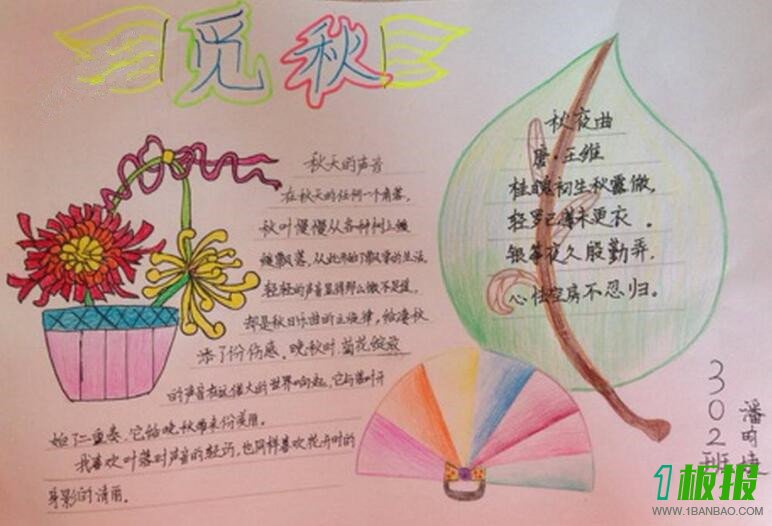 觅秋
秋天的声音
在秋天的任何一个角落,
秋叶慢慢从各种树上缓
缓飘落,从此开始了飘零的生活,
轻轻的声音显得那么微不足道,
却是秋日乐曲的主旋律,给凄秋
添了份伤感。晚秋时菊花绽放
的声音在这偌大的世界响起,它与落叶开
始了二重奏。它给晚秋带来份美丽。
我喜欢叶落时声音的轻巧,也同样喜欢花开时的
身影的清丽。
秋夜曲
唐·王维
桂魄初生秋露微,
轻罗已薄未更衣。
银筝夜久殷勤弄,
心怯空房不忍归。
302班
潘
1板报
WWW.1BANBAO.COM